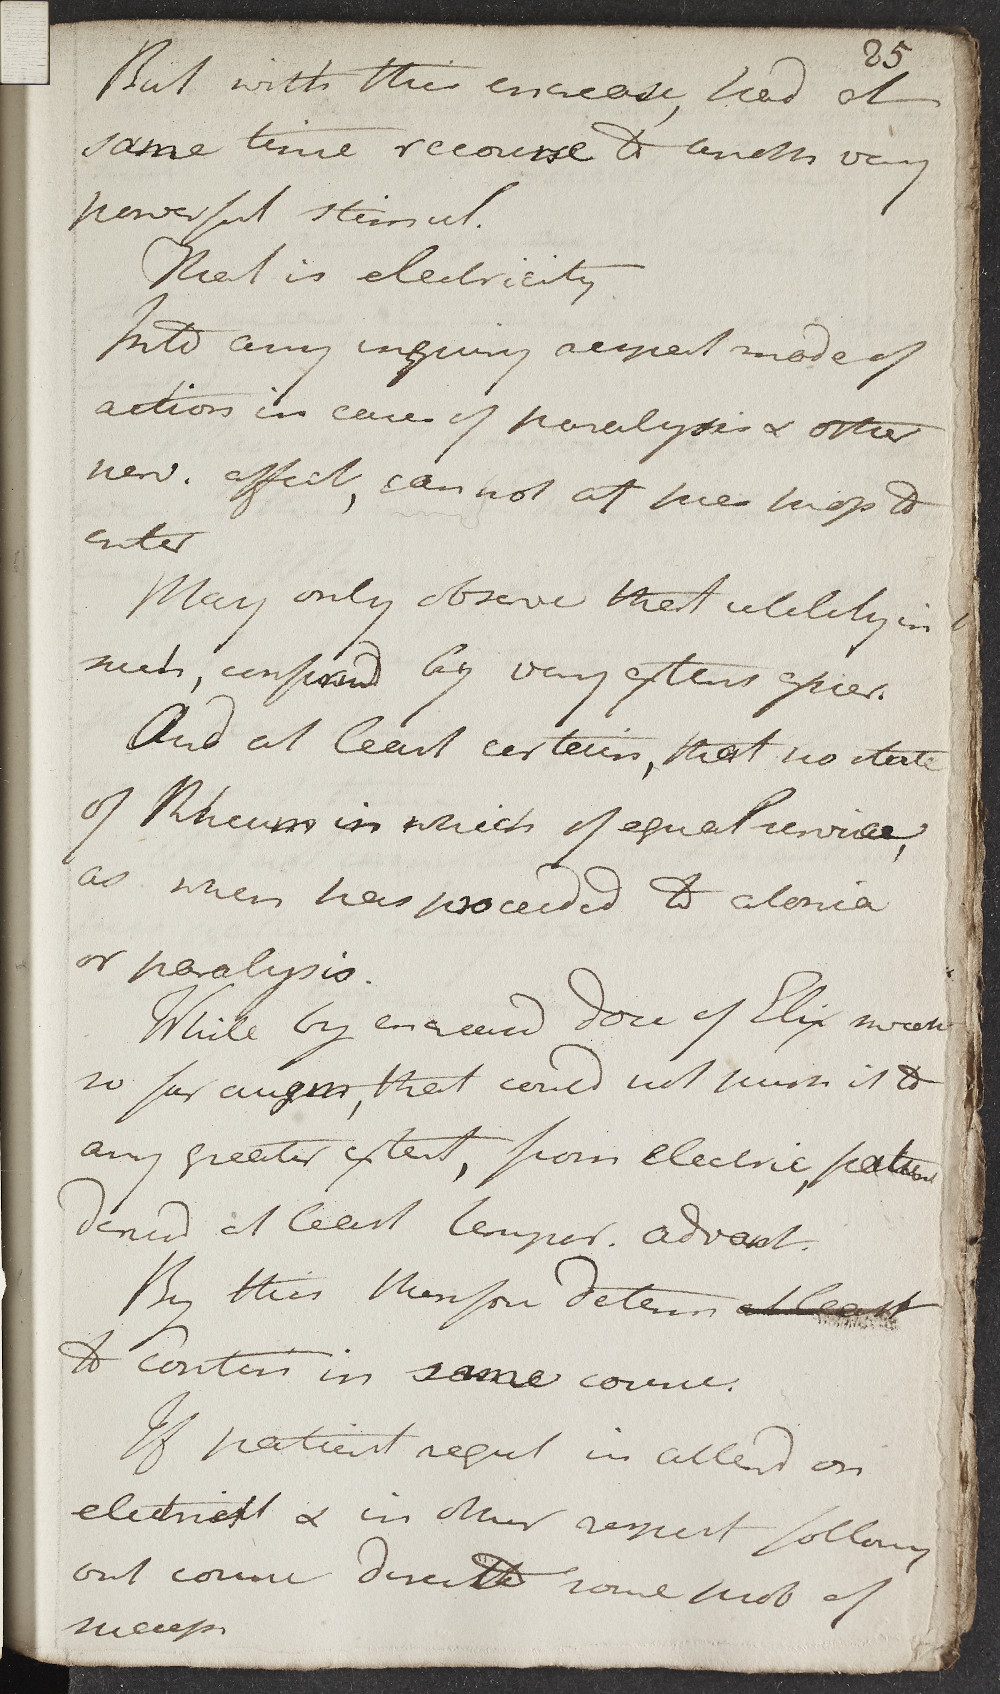 25
But with this encrease, had at
same time recourse to anoth very
powerful stimul.
That is electricity
Into any inquiry respect mode of
action in cases of paralysis & other
nerv. affect, cannot at pres propose to
enter
May only observe that utility in
such, confirmd by very extens exper.
And at least certain, that no state
of Rheum in which of equal service,
as when has proceeded to atonia
or paralysis.
While by encreased dose of Elix
so far augm, that could not push it to
any greater extent, from electric, patient
derived at least tempor. advant.
By this therefore determ at least
to contin in same course.
If patient regul in attend on
electricit & in other respect follow
out course directed some prob of
success